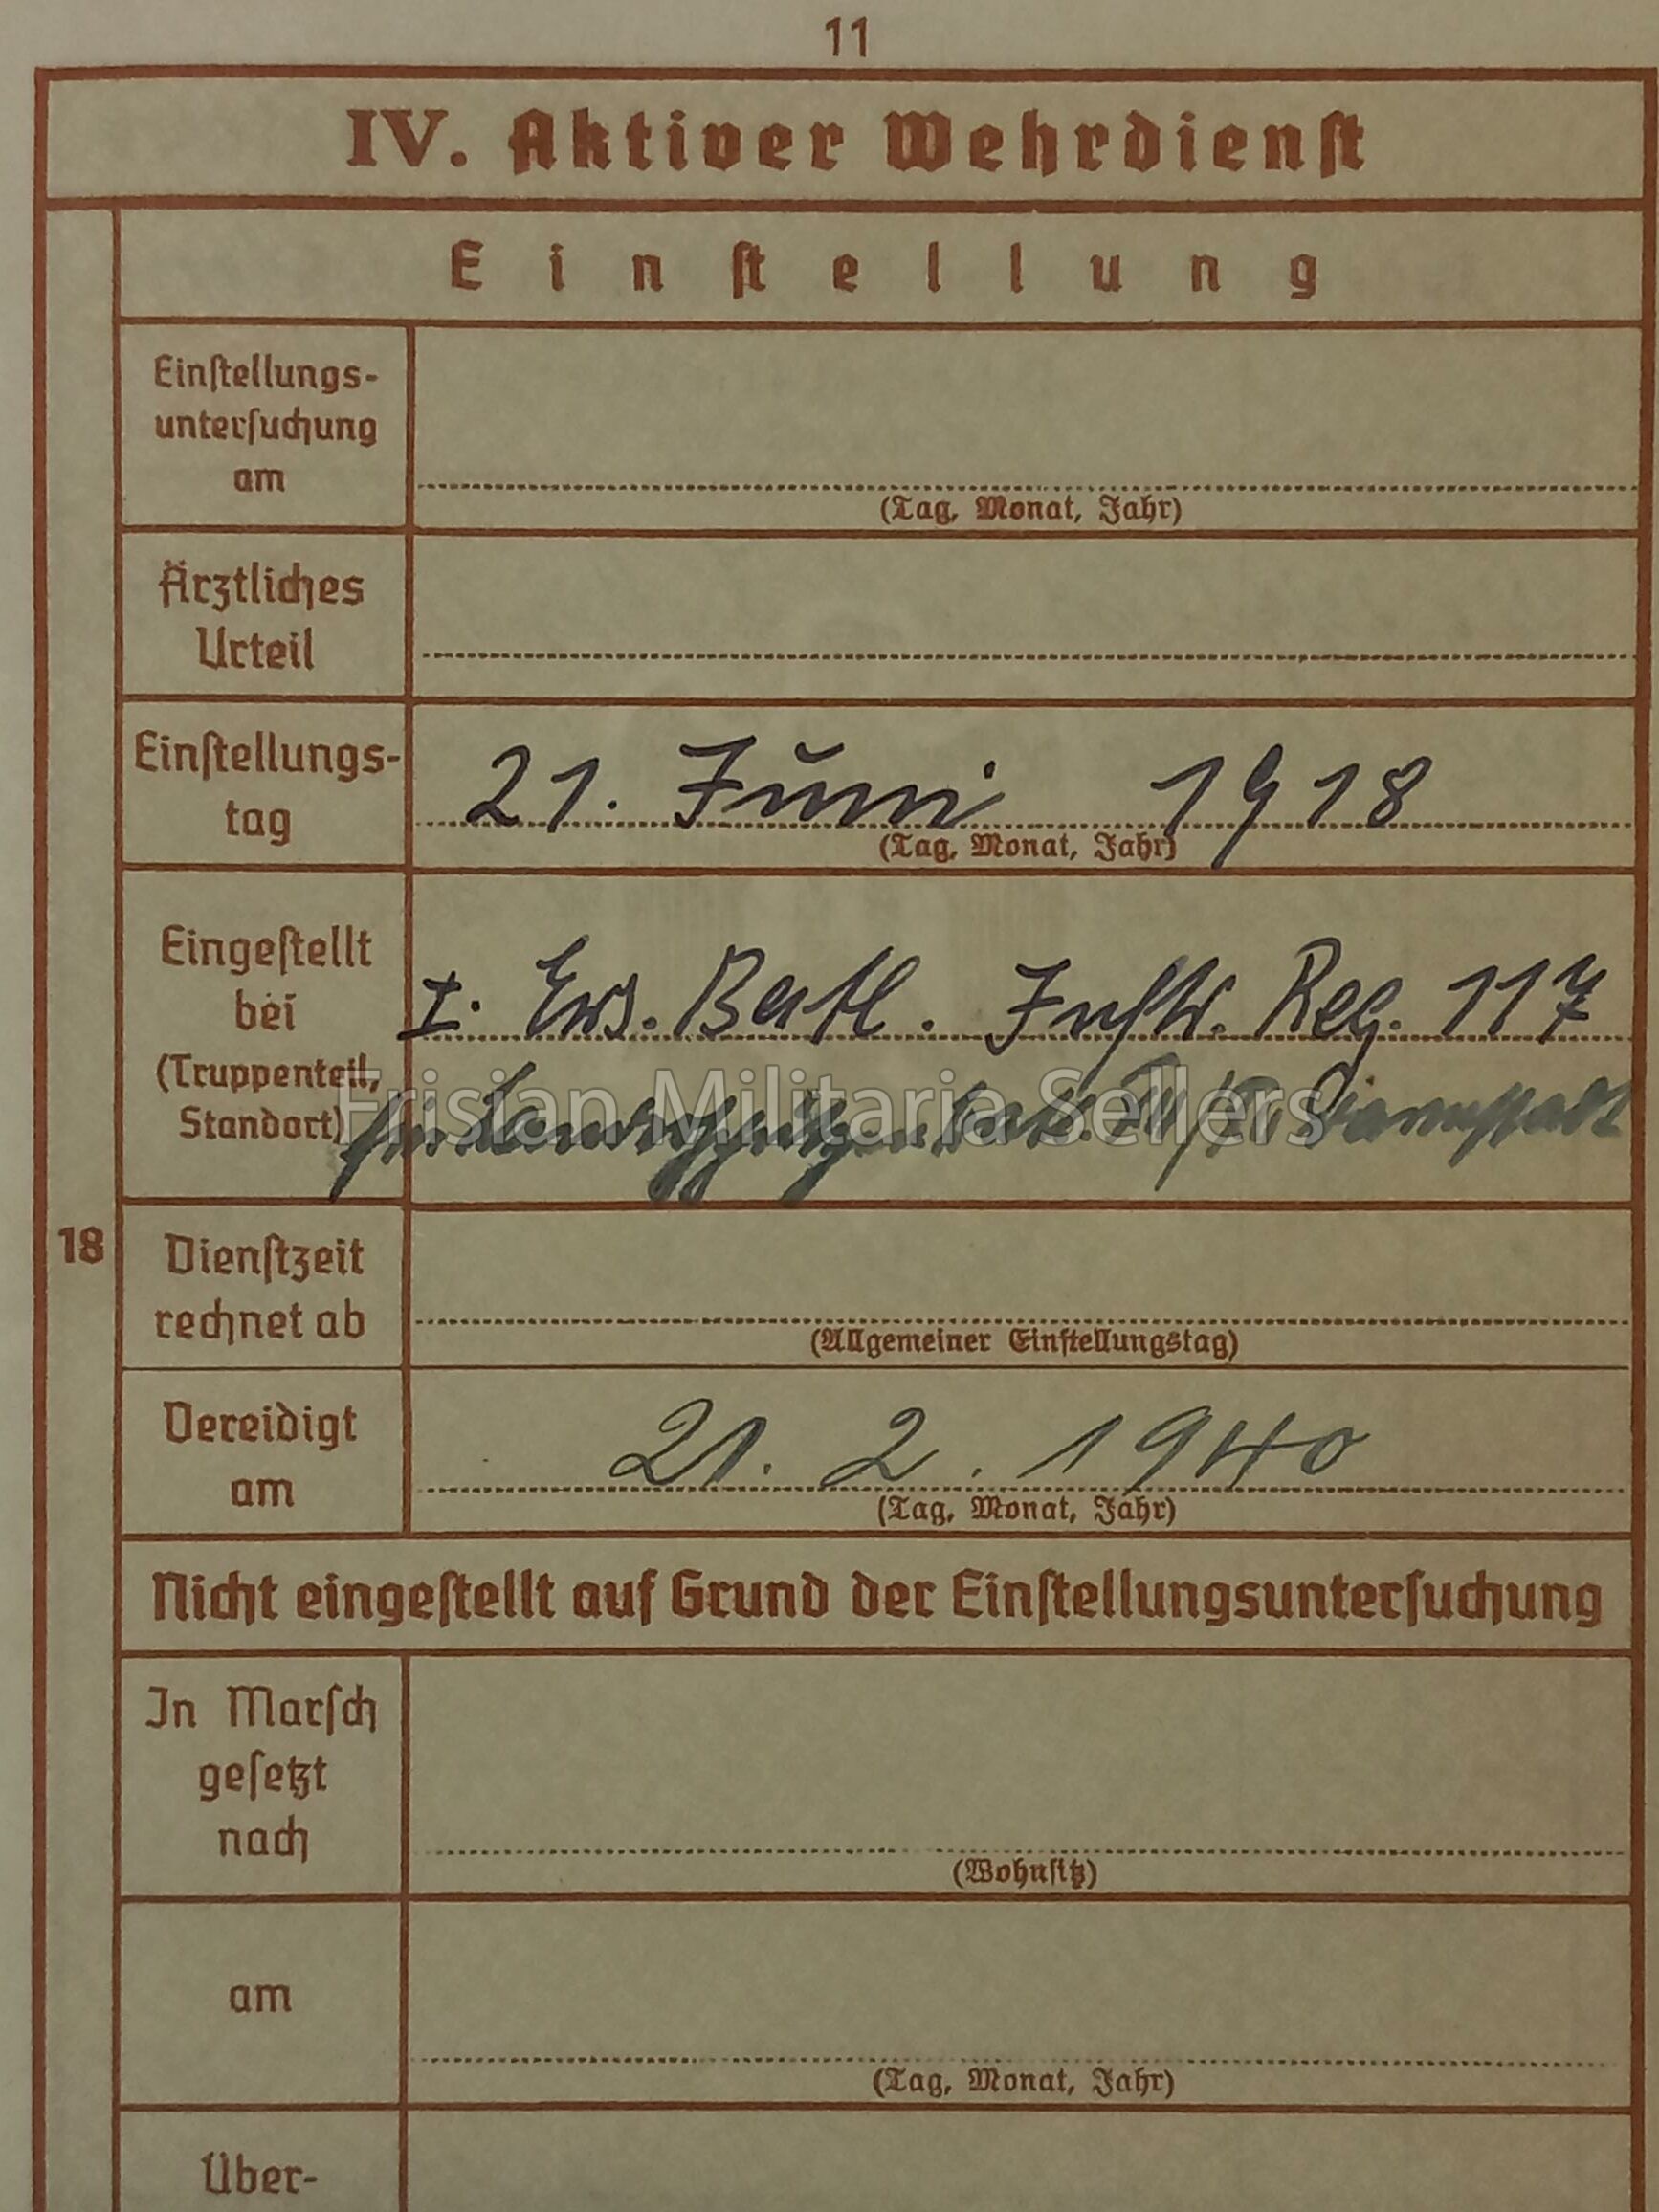 11
IV. Aktiver Wehrdienst
Einstellung
Einstellungs-
untersuchung
am
(Tag, Monat, Jahr)
Ärztliches
Urteil
Einstellungs-
tag
21. Juni 1918
(Tag, Monat, Jahr)
Eingestellt
bei
(Truppenteil,
Standort)
I. Ers. Batl. Inftr. Reg. 117
Darmstadt
Frisian Militaria Sellers
18
Dienstzeit
rechnet ab
(Allgemeiner Einstellungstag)
Vereidigt
am
21. 2. 1940
(Tag, Monat, Jahr)
Nicht eingestellt auf Grund der Einstellungsuntersuchung
In Marsch
gesetzt
nach
(Wohnsitz)
am
(Tag, Monat, Jahr)
Über-